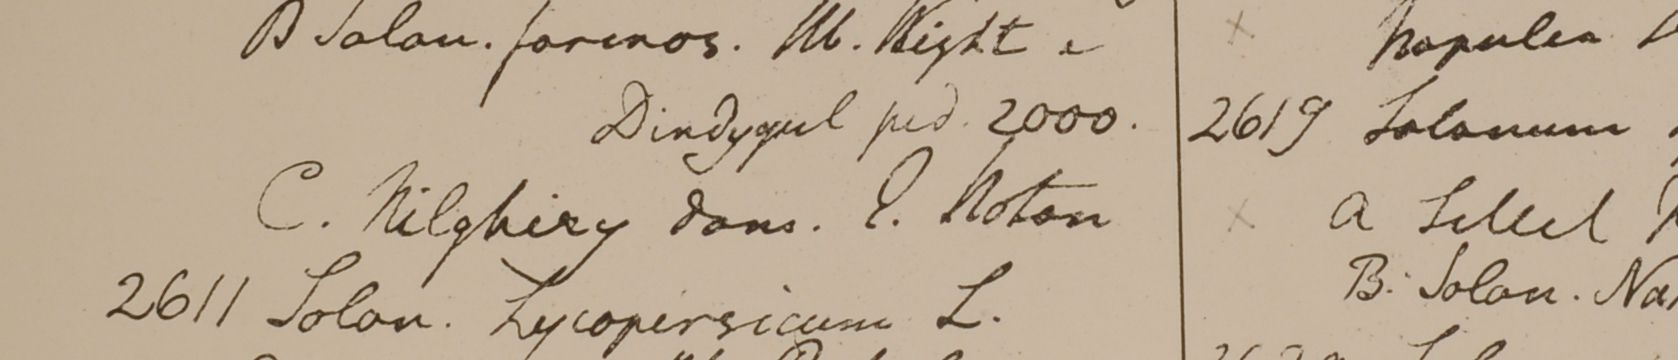 B Solan. farinos. Hb. Wight e
Dindygul ped. 2000.
C. Nilghiry dom. E. Noton
2611 Solan. Lycopersicum L.
Napulea
2619 Solanum
a Sillet
B. Solan. Na